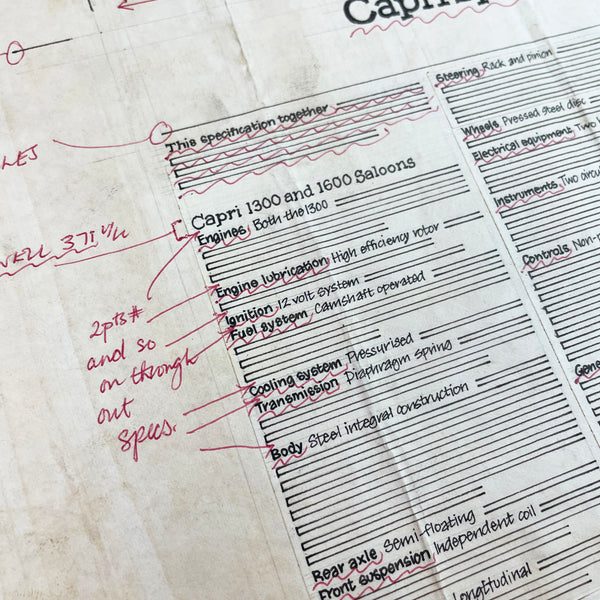 Capri
This specification together
Capri 1300 and 1600 Saloons
Engines Both the 1300
Engine lubrication High efficiency rotor
Ignition 12 volt system
Fuel system Camshaft operated
Cooling system Pressurised
Transmission Diaphragm spring
Body Steel integral construction
Rear axle Semi-floating
Front suspension Independent coil
Longitudinal
Steering Rack and pinion
Wheels Pressed steel disc
Electrical equipment Two
Instruments Two
Controls Non-
2pts #
and so
on through
out
specs.